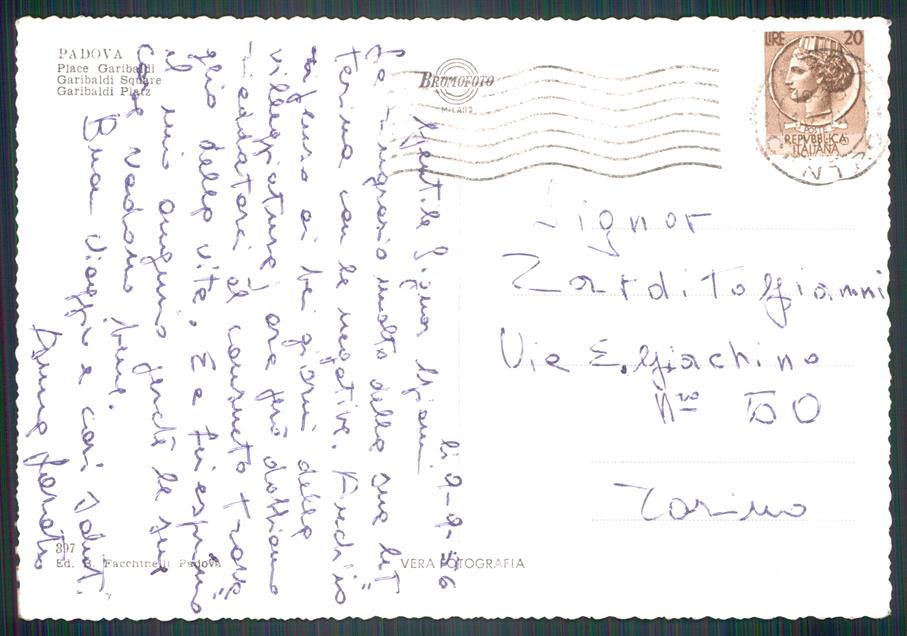 PADOVA
Place Garibaldi
Garibaldi Square
Garibaldi Platz
BROMOFOTO
MILANO
LIRE 20
POSTE
REPVBBLICA
ITALIANA
li 2-9-56
Gentile Signor Gianni
La ringrazio molto della sua let=
terina con le negative. Anch'io
ripenso ai bei giorni della
villeggiatura, ora però dobbiamo
riadattarci al consueto trava=
glio della vita. E a lui esprimo
il mio augurio perché le sue
cose vadano bene.
Buon viaggio e cari saluti.
Anna
Signor
Zardito Gianni
Via E. Giachino
Nro 50
Torino
397
Ed. B. Facchinelli Padova
VERA FOTOGRAFIA